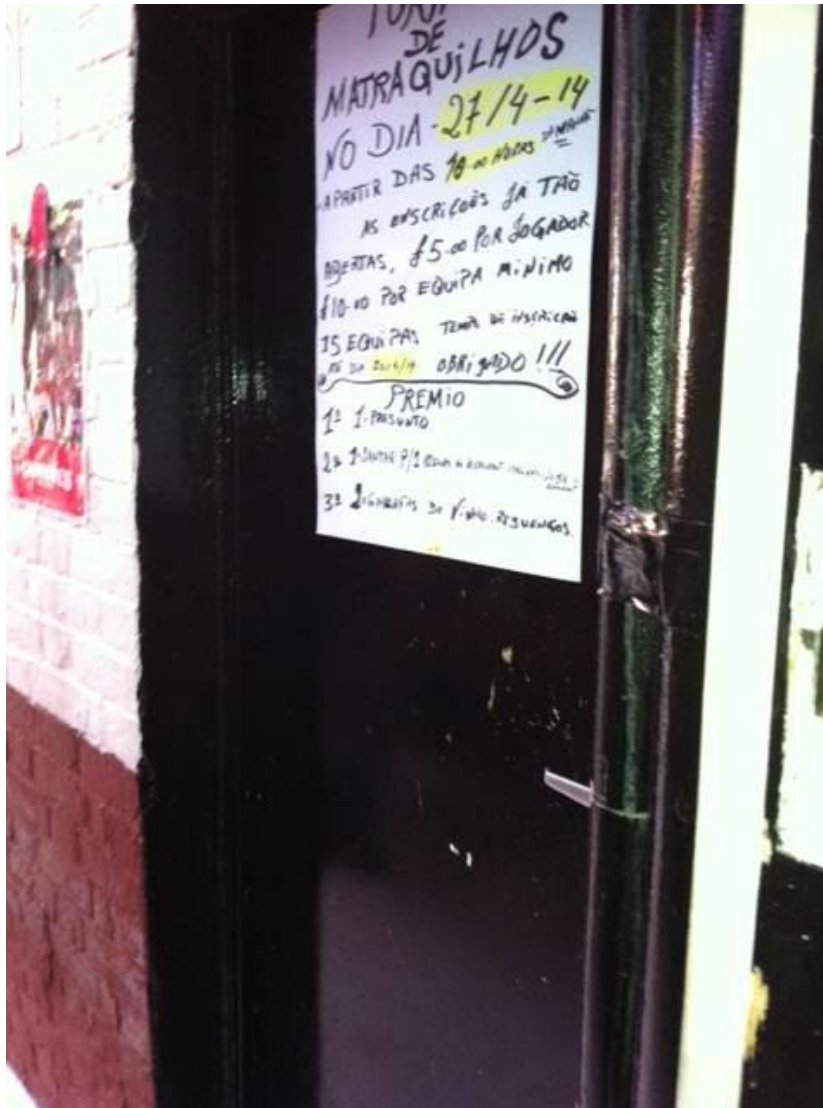 DE
MATRAQUiLHOS
NO DIA - 27/4-14
APARTIR DAS 10.00 HORAS DA MANHÃ
AS ENSCRIÇÕES JÁ TÃO
ABERTAS, £5.00 POR JOGADOR
£10.00 POR EQUIPA MiNiMO
15 EQUiPAS
OBRIGADO !!!
PREMiO
1º 1-PRESUNTO
2º 1-JANTAR P/1
3º 2-GARRAFAS DE ViNHO REGUENGOS.